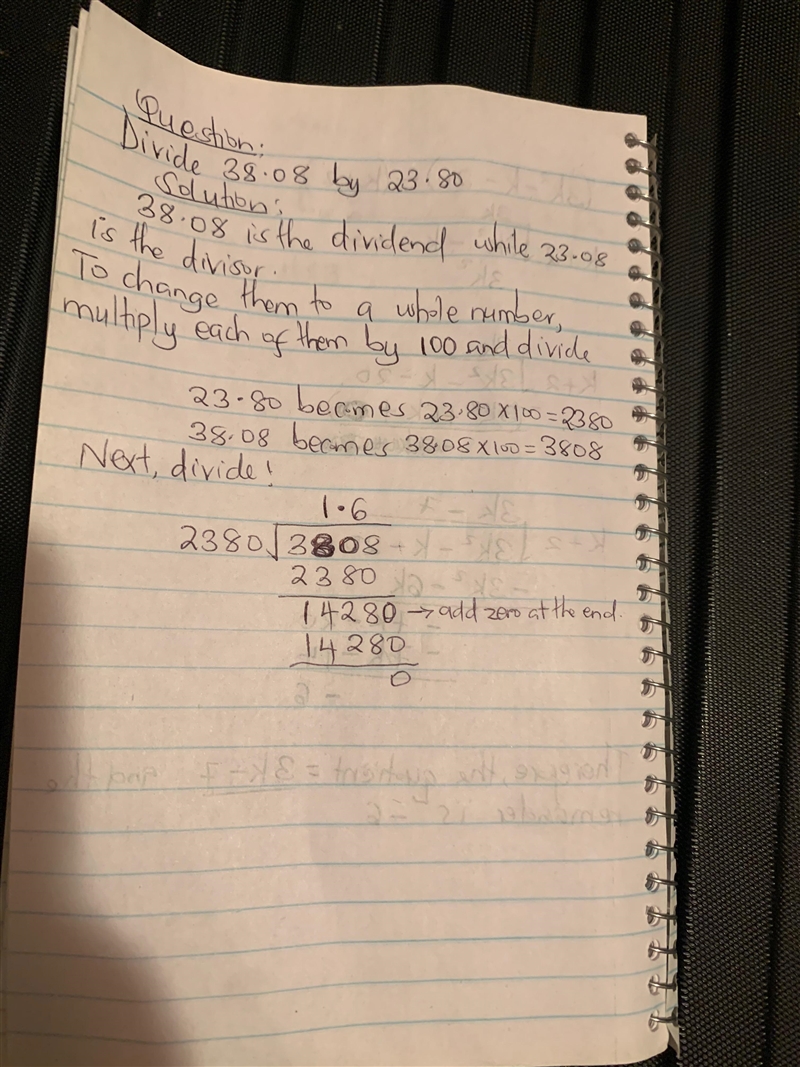 Question:
Divide 38.08 by 23.80
Solution:
38.08 is the dividend while 23.08
is the divisor.
To change them to a whole number,
multiply each of them by 100 and divide
23.80 becomes 23.80 × 100 = 2380
38.08 becomes 38.08 × 100 = 3808
Next, divide!
1.6
2380√3808
2380
14280 → add zero at the end.
14280
0